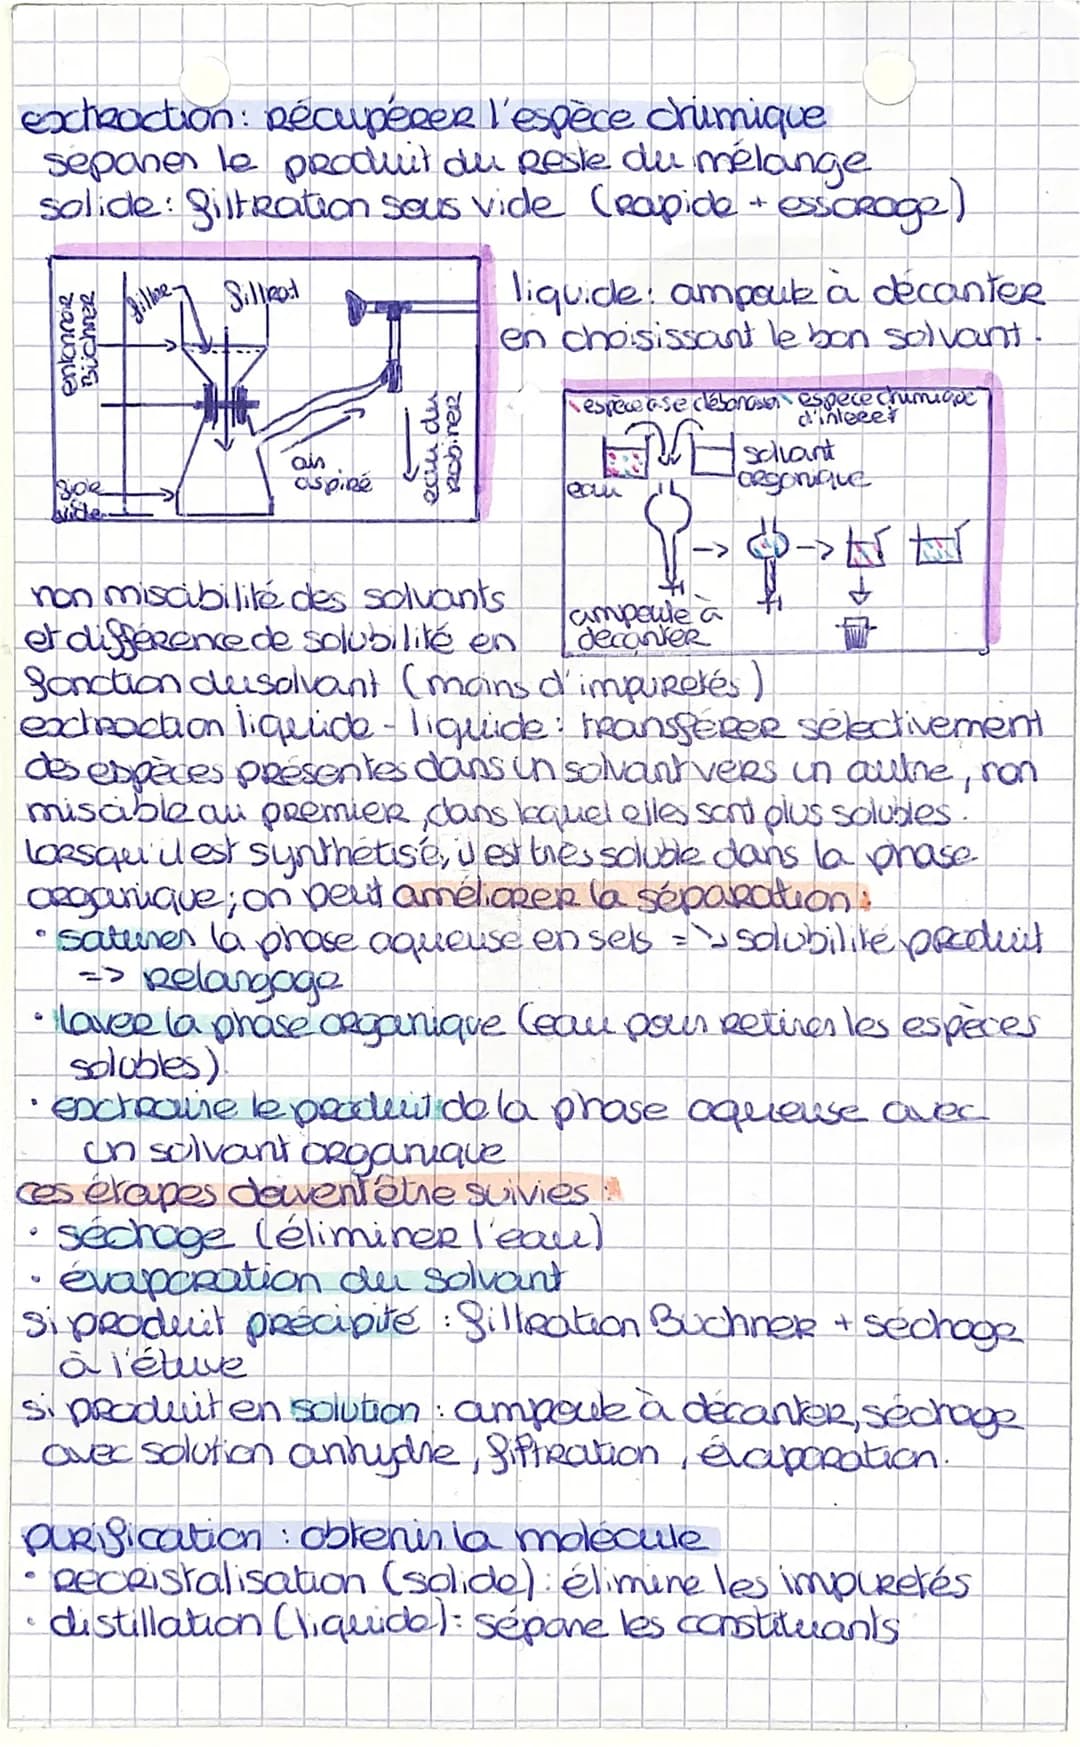 extraction : récupérer l'espèce chimique
séparer le produit du reste du mélange
solide : filtration sous vide (rapide + essorage)
entonnoir
Büchner
filtre
filtrat
air
aspiré
eau du
robinet
vide
liquide : ampoule à décanter
en choisissant le bon solvant.
espèce à se débarrasser espèce chimique
d'intérêt
solvant
organique
eau
ampoule à
décanter
non miscibilité des solvants
et différence de solubilité en
fonction du solvant (moins d'impuretés)
extraction liquide - liquide : transférer sélectivement
des espèces présentes dans un solvant vers un autre, non
miscible au premier, dans lequel elles sont plus solubles.
lorsqu'il est synthétisé, il est très soluble dans la phase
organique ; on peut améliorer la séparation :
• saturer la phase aqueuse en sels = ↘ solubilité produit
=> relargage
• laver la phase organique (eau pour retirer les espèces
solubles).
• extraire le produit de la phase aqueuse avec
un solvant organique
ces étapes doivent être suivies :
• séchage (éliminer l'eau)
• évaporation du solvant
si produit précipité : filtration Büchner + séchage
à l'étuve
si produit en solution : ampoule à décanter, séchage
avec solution anhydre, filtration, évaporation.
purification : obtenir la molécule
• recristalisation (solide) : élimine les impuretés
• distillation (liquide) : sépare les constituants